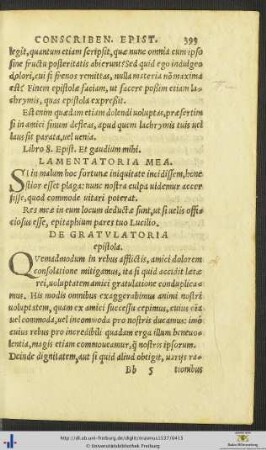 CONSCRIBEN. EPIST. 399
legit, quantum etiam scripsit, quæ nunc omnia cum ipso
sine fructu posteritatis abierunt? Sed quid ego indulgeo
dolori, cui si frenos remittas, nulla materia nō maxima
est? Finem epistolæ faciam, ut facere possim etiam la-
chrymis, quas epistola expressit.
Est enim quædam etiam dolendi uoluptas, præsertim
si in amici sinum defleas, apud quem lachrymis tuis uel
laus sit parata, uel uenia.
Libro 8. Epist. Et gaudium mihi.
LAMENTATORIA MEA.
Si in malum hoc fortunæ iniquitate incidissem, hone
stior esset plaga: nunc nostra culpa uidemur accer
sisse, quod commode uitari poterat.
Res mea in eum locum deductæ sunt, ut si uelis offi-
ciosus esse, epitaphium pares tuo Lucilio.
DE GRATVLATORIA
epistola.
Quemadmodum in rebus afflictis, amici dolorem
consolatione mitigamus, ita si quid accidit lætæ
rei, uoluptatem amici gratulatione conduplica-
mus. His modis omnibus exaggerabimus animi nostri
uoluptatem, quam ex amici successu cepimus, cuius eū
uel commoda, uel incommoda pro nostris ducamus: imò
cuius rebus pro incredibili quadam erga illum beneuo-
lentia, magis etiam commoueamur, q̃ nostris ipsorum.
Deinde dignitatem, aut si quid aliud obtigit, uarijs ra-
Bb 5 tionibus
http://dl.ub.uni-freiburg.de/diglit/erasmus1537/0413
© Universitätsbibliothek Freiburg